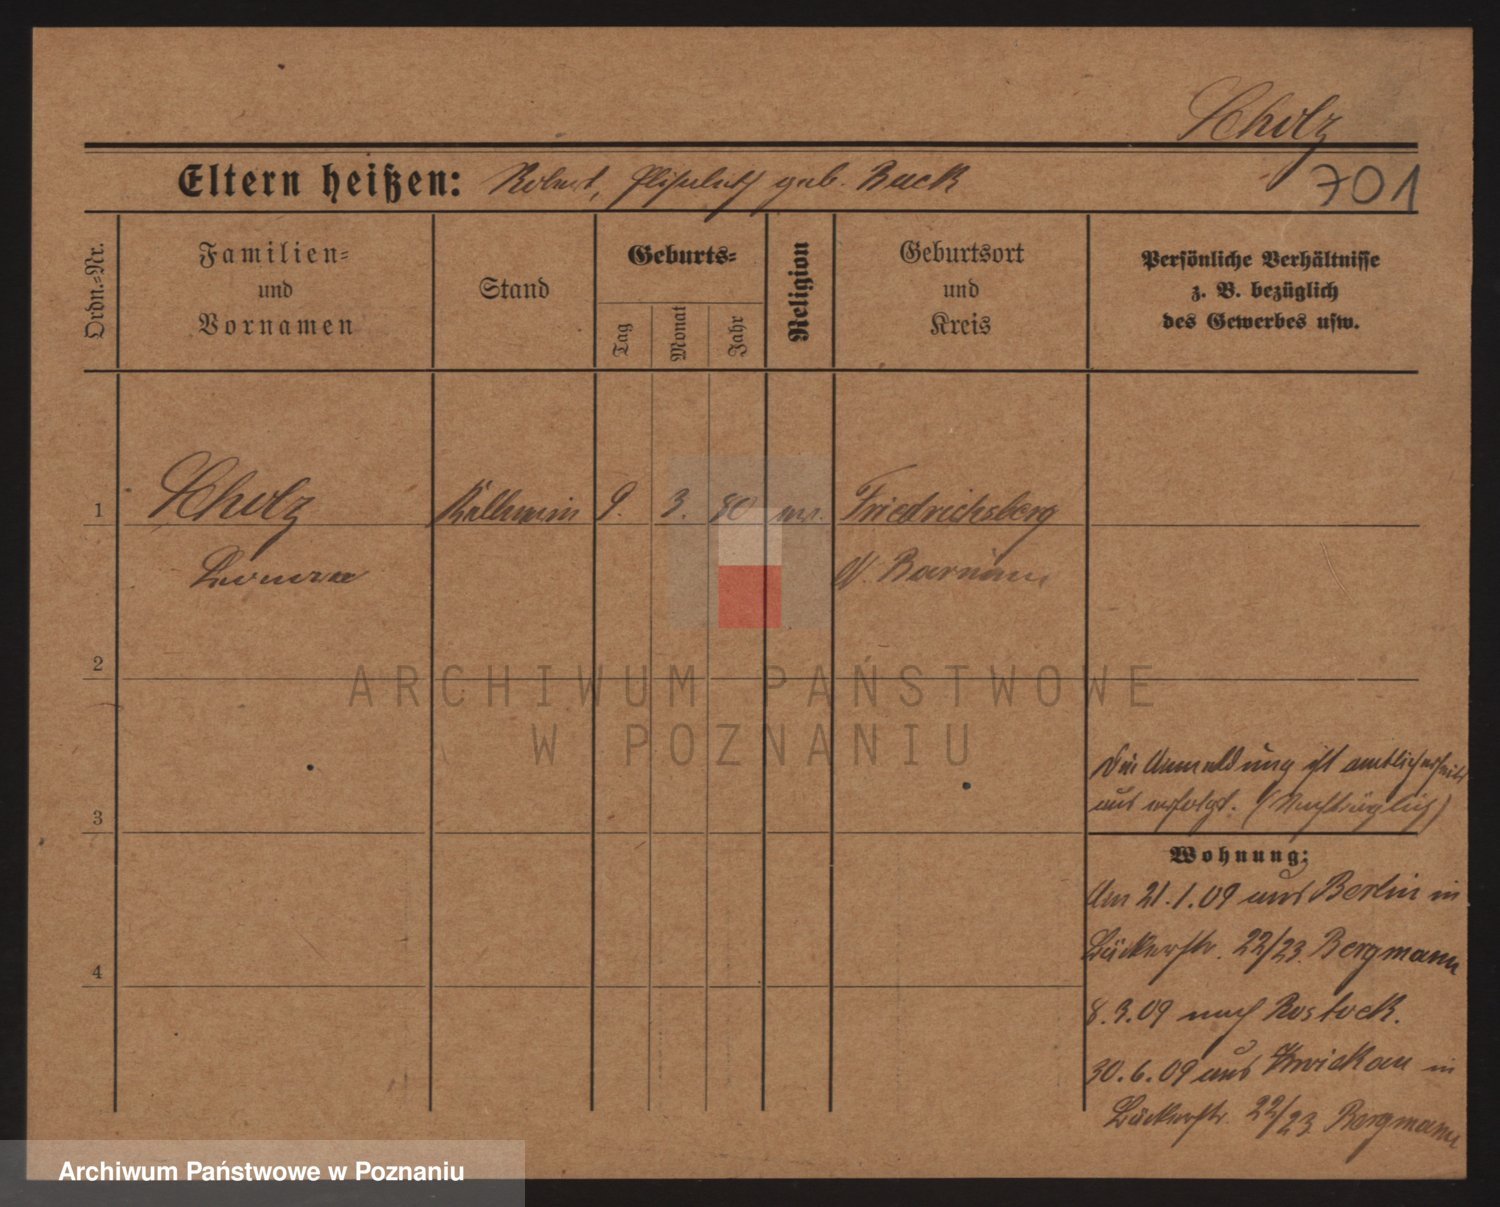 Scholz
701
Eltern heißen: Robert, Elisabeth geb. Buck
Ordn.=Nr.
Familien=
und
Vornamen
Stand
Geburts=
Tag
Monat
Jahr
Religion
Geburtsort
und
Kreis
Persönliche Verhältnisse
z. B. bezüglich
des Gewerbes usw.
1
Scholz
Kellnerin
9. 3. 80
ev.
Friedrichsberg
N. Barnim
2
ARCHIWUM PAŃSTWOWE
W POZNANIU
Die Anmeldung ist amtlicherseits
aus erfolgt. (Nachträglich)
3
Wohnung:
Am 21.1.09 aus Berlin in
Bäckerstr. 22/23. Bergmann
4
8.3.09 nach Rostock.
30.6.09 aus Zwickau in
Bäckerstr. 22/23. Bergmann
Archiwum Państwowe w Poznaniu